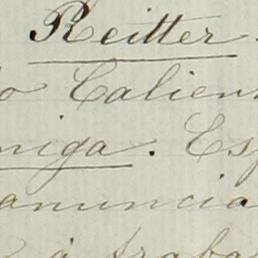 Reitter.
o Calien
niga. Es
anuncia
á traba